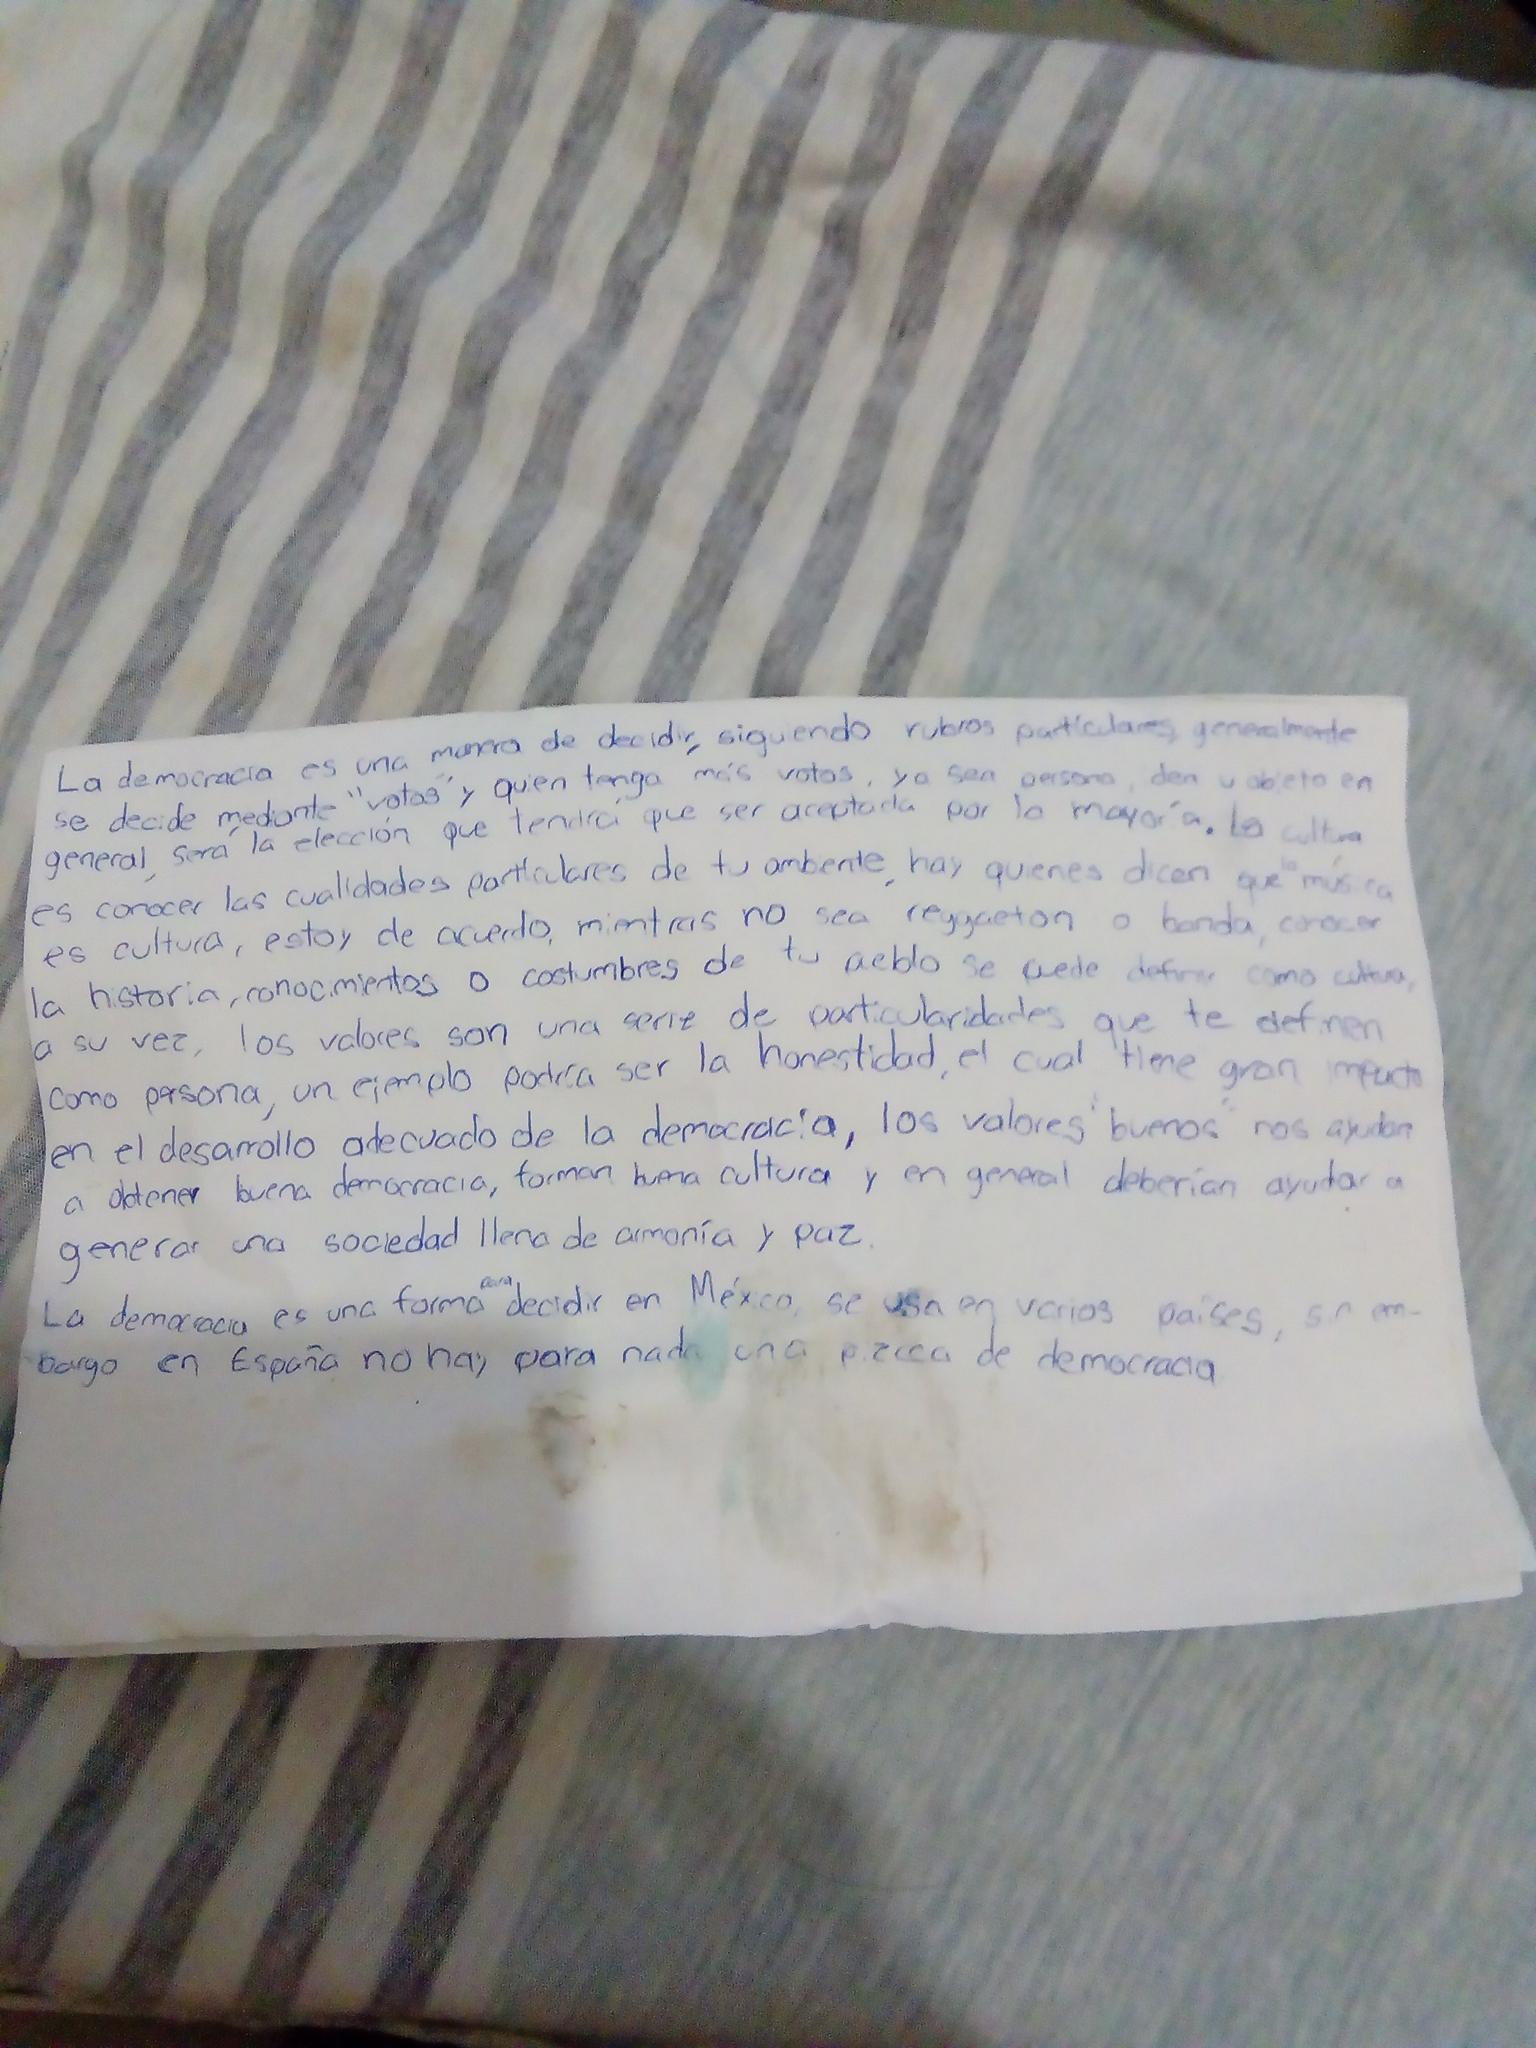 La democracia es una manera de decidir, siguiendo rubros particulares, generalmente
se decide mediante "votos" y quien tenga más votos, ya sea persona, den u objeto en
general, será la elección que tendrá que ser aceptada por la mayoría. La cultura
es conocer las cualidades particulares de tu ambente, hay quienes dicen que la música
es cultura, estoy de acuerdo, mientras no sea reggaeton o banda, conocer
la historia, conocimientos o costumbres de tu pueblo se puede definir como cultura,
a su vez, los valores son una serie de particularidades que te definen
como persona, un ejemplo podría ser la honestidad, el cual tiene gran impacto
en el desarrollo adecuado de la democracia, los valores "buenos" nos ayudan
a obtener buena democracia, forman buena cultura y en general deberían ayudar a
generar una sociedad llena de armonía y paz.
La democracia es una forma para decidir en México, se usa en varios países, sin em-
bargo en España no hay para nada una pizca de democracia